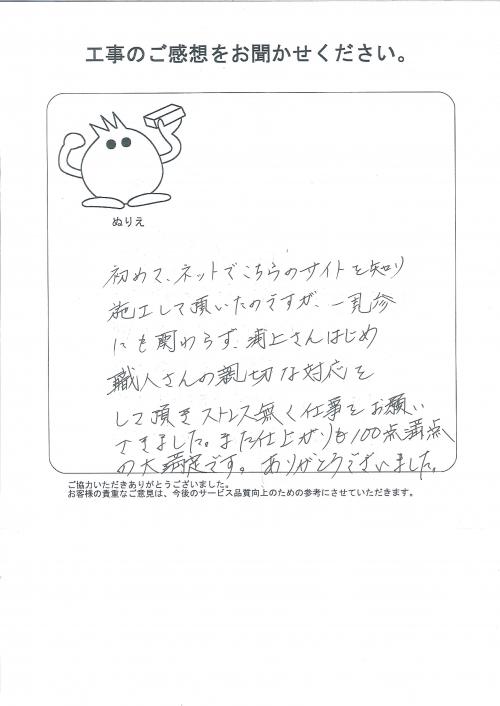 工事のご感想をお聞かせください。
ぬりえ
初めて、ネットでこちらのサイトを知り
施工して頂いたのですが、一見さん
にも関わらず、浦上さんはじめ
職人さんの親切な対応を
して頂きストレス無く仕事をお願い
できました。また仕上がりも100点満点
の大満足です。ありがとうございました。
ご協力いただきありがとうございました。
お客様の貴重なご意見は、今後のサービス品質向上のための参考にさせていただきます。